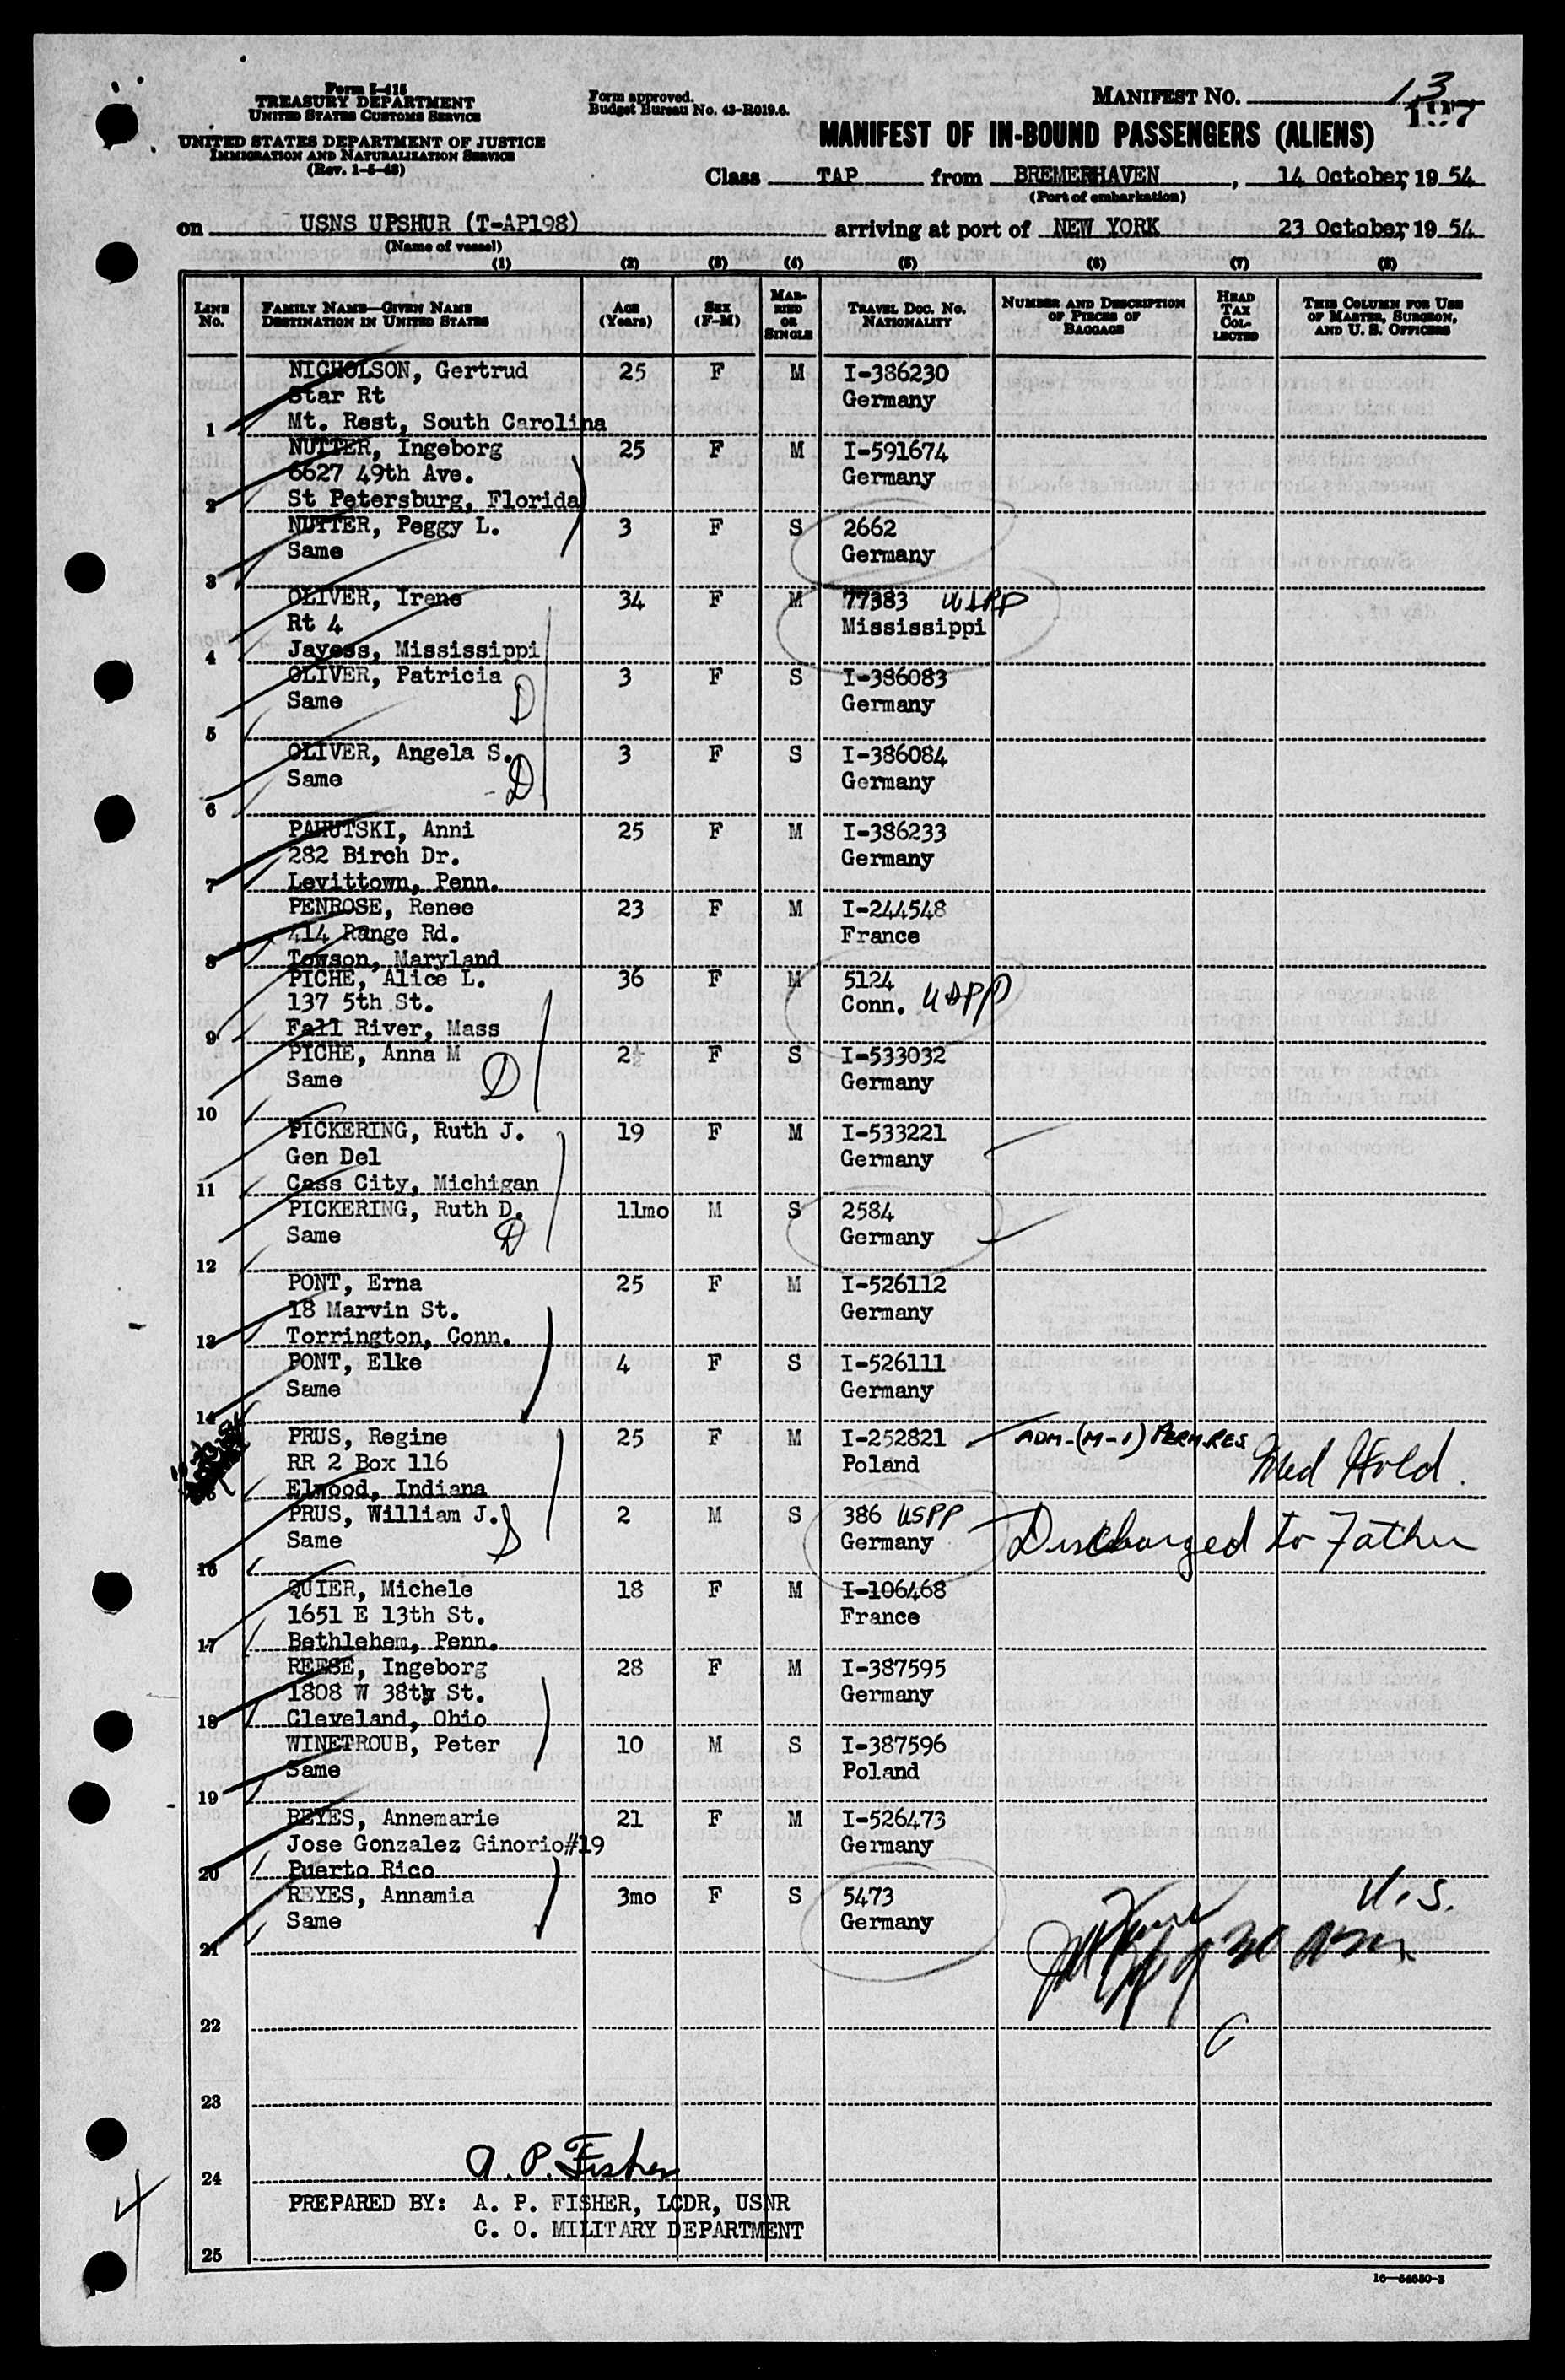 Form I-415
TREASURY DEPARTMENT
UNITED STATES CUSTOMS SERVICE
UNITED STATES DEPARTMENT OF JUSTICE
IMMIGRATION AND NATURALIZATION SERVICE
(Rev. 1-5-48)
Form approved.
Budget Bureau No. 43-R019.6.
MANIFEST NO. 13
MANIFEST OF IN-BOUND PASSENGERS (ALIENS)
Class TAP from BREMERHAVEN, 14 October, 19 54
(Port of embarkation)
on USNS UPSHUR (T-AP198) arriving at port of NEW YORK 23 October, 19 54
(Name of vessel)
(1) (2) (3) (4) (5) (6) (7) (8)
LINE No. FAMILY NAME—GIVEN NAME DESTINATION IN UNITED STATES AGE (Years) SEX (F-M) MARRIED OR SINGLE TRAVEL DOC. NO. NATIONALITY NUMBER AND DESCRIPTION OF PIECES OF BAGGAGE HEAD TAX COLLECTED THIS COLUMN FOR USE OF MASTER, SURGEON, AND U. S. OFFICERS
NICHOLSON, Gertrud 25 F M I-386230
Star Rt Germany
1 Mt. Rest, South Carolina
NUTTER, Ingeborg 25 F M I-591674
6627 49th Ave. Germany
2 St Petersburg, Florida
NUTTER, Peggy L. 3 F S 2662
Same Germany
3
OLIVER, Irene 34 F M 77383 USPP
Rt 4 Mississippi
4 Jayess, Mississippi
OLIVER, Patricia 3 F S I-386083
Same D Germany
5
OLIVER, Angela S. 3 F S I-386084
Same D Germany
6
PAHUTSKI, Anni 25 F M I-386233
282 Birch Dr. Germany
7 Levittown, Penn.
PENROSE, Renee 23 F M I-244548
414 Range Rd. France
8 Towson, Maryland
PICHE, Alice L. 36 F M 5124
137 5th St. Conn. USPP
9 Fall River, Mass
PICHE, Anna M 2½ F S I-533032
Same D Germany
10
PICKERING, Ruth J. 19 F M I-533221
Gen Del Germany
11 Cass City, Michigan
PICKERING, Ruth D. 11mo M S 2584
Same D Germany
12
PONT, Erna 25 F M I-526112
18 Marvin St. Germany
13 Torrington, Conn.
PONT, Elke 4 F S I-526111
Same Germany
14
PRUS, Regine 25 F M I-252821 ADM-(M-1) PERM.RES
RR 2 Box 116 Poland Med Hold.
15 Elwood, Indiana
PRUS, William J. 2 M S 386 USPP
Same D Germany Discharged to Father
16
QUIER, Michele 18 F M I-106468
1651 E 13th St. France
17 Bethlehem, Penn.
REESE, Ingeborg 28 F M I-387595
1808 W 38th St. Germany
18 Cleveland, Ohio
WINETROUB, Peter 10 M S I-387596
Same Poland
19
REYES, Annemarie 21 F M I-526473
Jose Gonzalez Ginorio#19 Germany
20 Puerto Rico
REYES, Annamia 3mo F S 5473 U.S.
Same Germany
21
22
23
A. P. Fisher
24
PREPARED BY: A. P. FISHER, LCDR, USNR
C. O. MILITARY DEPARTMENT
25
4
16—54650-3